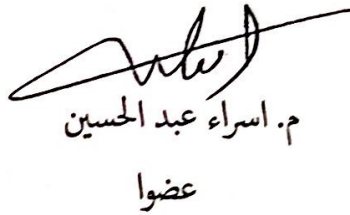 م. اسراء عبد الحسين
عضوا